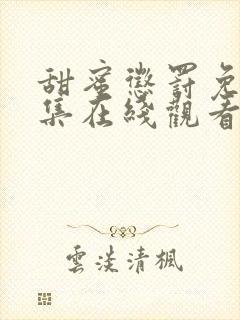 甜蜜懲罰免
集在綫觀看
雲淡清楓